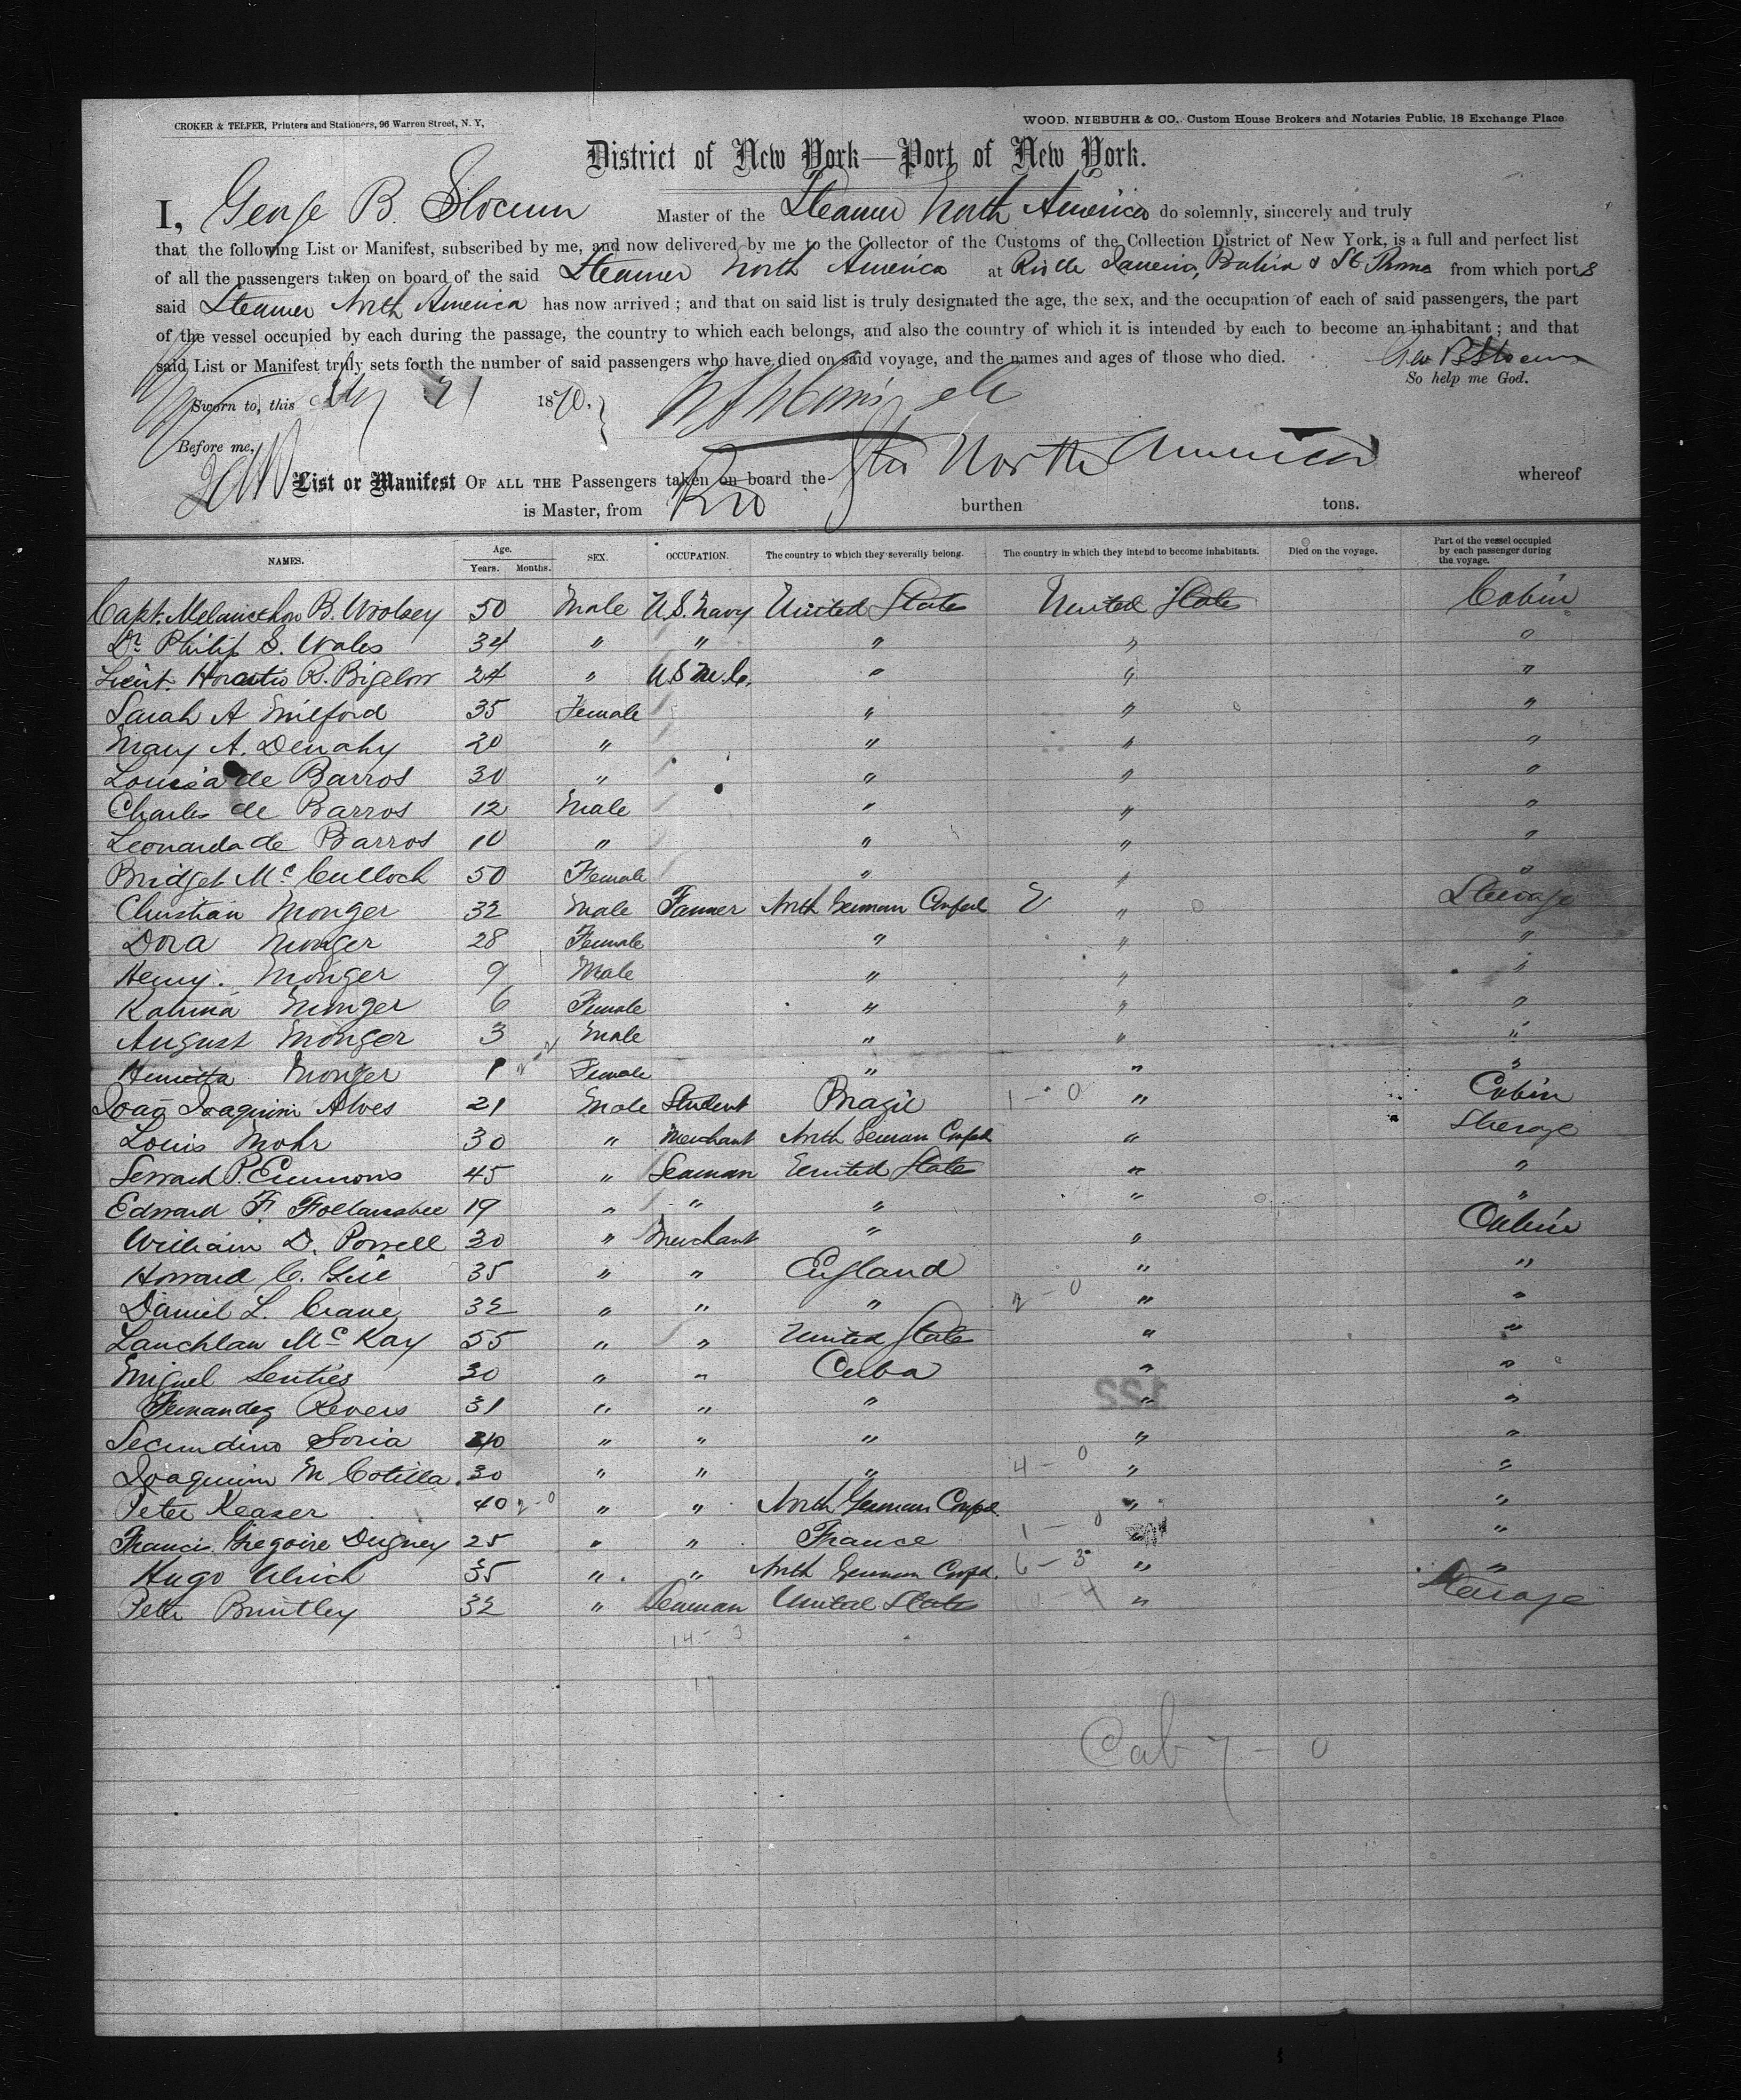 CROKER & TELFER, Printers and Stationers, 96 Warren Street, N. Y,
WOOD, NIEBUHR & CO., Custom House Brokers and Notaries Public, 18 Exchange Place
District of New York—Port of New York.
I, George B. Slocum Master of the Steamer North America do solemnly, sincerely and truly
that the following List or Manifest, subscribed by me, and now delivered by me to the Collector of the Customs of the Collection District of New York, is a full and perfect list
of all the passengers taken on board of the said Steamer North America at Rio de Janeiro, Bahia & St. Thomas from which ports
said Steamer North America has now arrived ; and that on said list is truly designated the age, the sex, and the occupation of each of said passengers, the part
of the vessel occupied by each during the passage, the country to which each belongs, and also the country of which it is intended by each to become an inhabitant ; and that
said List or Manifest truly sets forth the number of said passengers who have died on said voyage, and the names and ages of those who died. Geo B Slocum
So help me God.
Sworn to, this 21 1870,
Before me,
List or Manifest OF ALL THE Passengers taken on board the Str North America whereof
is Master, from Rio burthen tons.
NAMES. Age. Years. Months. SEX. OCCUPATION. The country to which they severally belong. The country in which they intend to become inhabitants. Died on the voyage. Part of the vessel occupied by each passenger during the voyage.
Capt. Melancthon B. Woolsey 50 Male U.S. Navy United States United States Cabin
Dr. Philip S. Wales 34 " " " " "
Lieut. Horatio R. Bigelow 24 " U.S.M.C. " " "
Sarah A Milford 35 Female " " "
Mary A. Denahy 20 " " " "
Louisa de Barros 30 " " " "
Charles de Barros 12 Male " " "
Leonarda de Barros 10 " " " "
Bridget McCulloch 50 Female " " "
Christian Monger 32 Male Farmer North German Confed " Steerage
Dora Monger 28 Female " " "
Henry Monger 9 Male " " "
Katrina Monger 6 Female " " "
August Monger 3 Male " " "
Henrietta Monger 1 Female " " "
Joaõ Joaquim Alves 21 Male Student Brazil 1 - 0 " Cabin
Louis Mohr 30 " Merchant North German Confed " Steerage
Seward P. Emmons 45 " Seaman United States " "
Edward F. Follansbee 19 " " " " "
William D. Powell 30 " Merchant " " Cabin
Howard C. Gill 35 " " England " "
Daniel L. Crane 32 " " " 2 - 0 " "
Lauchlan McKay 55 " " United States " "
Miguel Senties 30 " " Cuba " "
Fernandez Revers 31 " " " " "
122
Secundino Soria 40 " " " " "
Joaquim M Cotilla 30 " " " 4 - 0 " "
Peter Keaser 40 2-0 " " North German Confed. " "
Francis Gregoire Dugney 25 " " France 1 - 0 " "
Hugo Ulrich 35 " " North German Confd. 6 - 3 " "
Peter Bruntley 32 " Seaman United States " Steerage
14 - 3
17
Cab 7 - 0